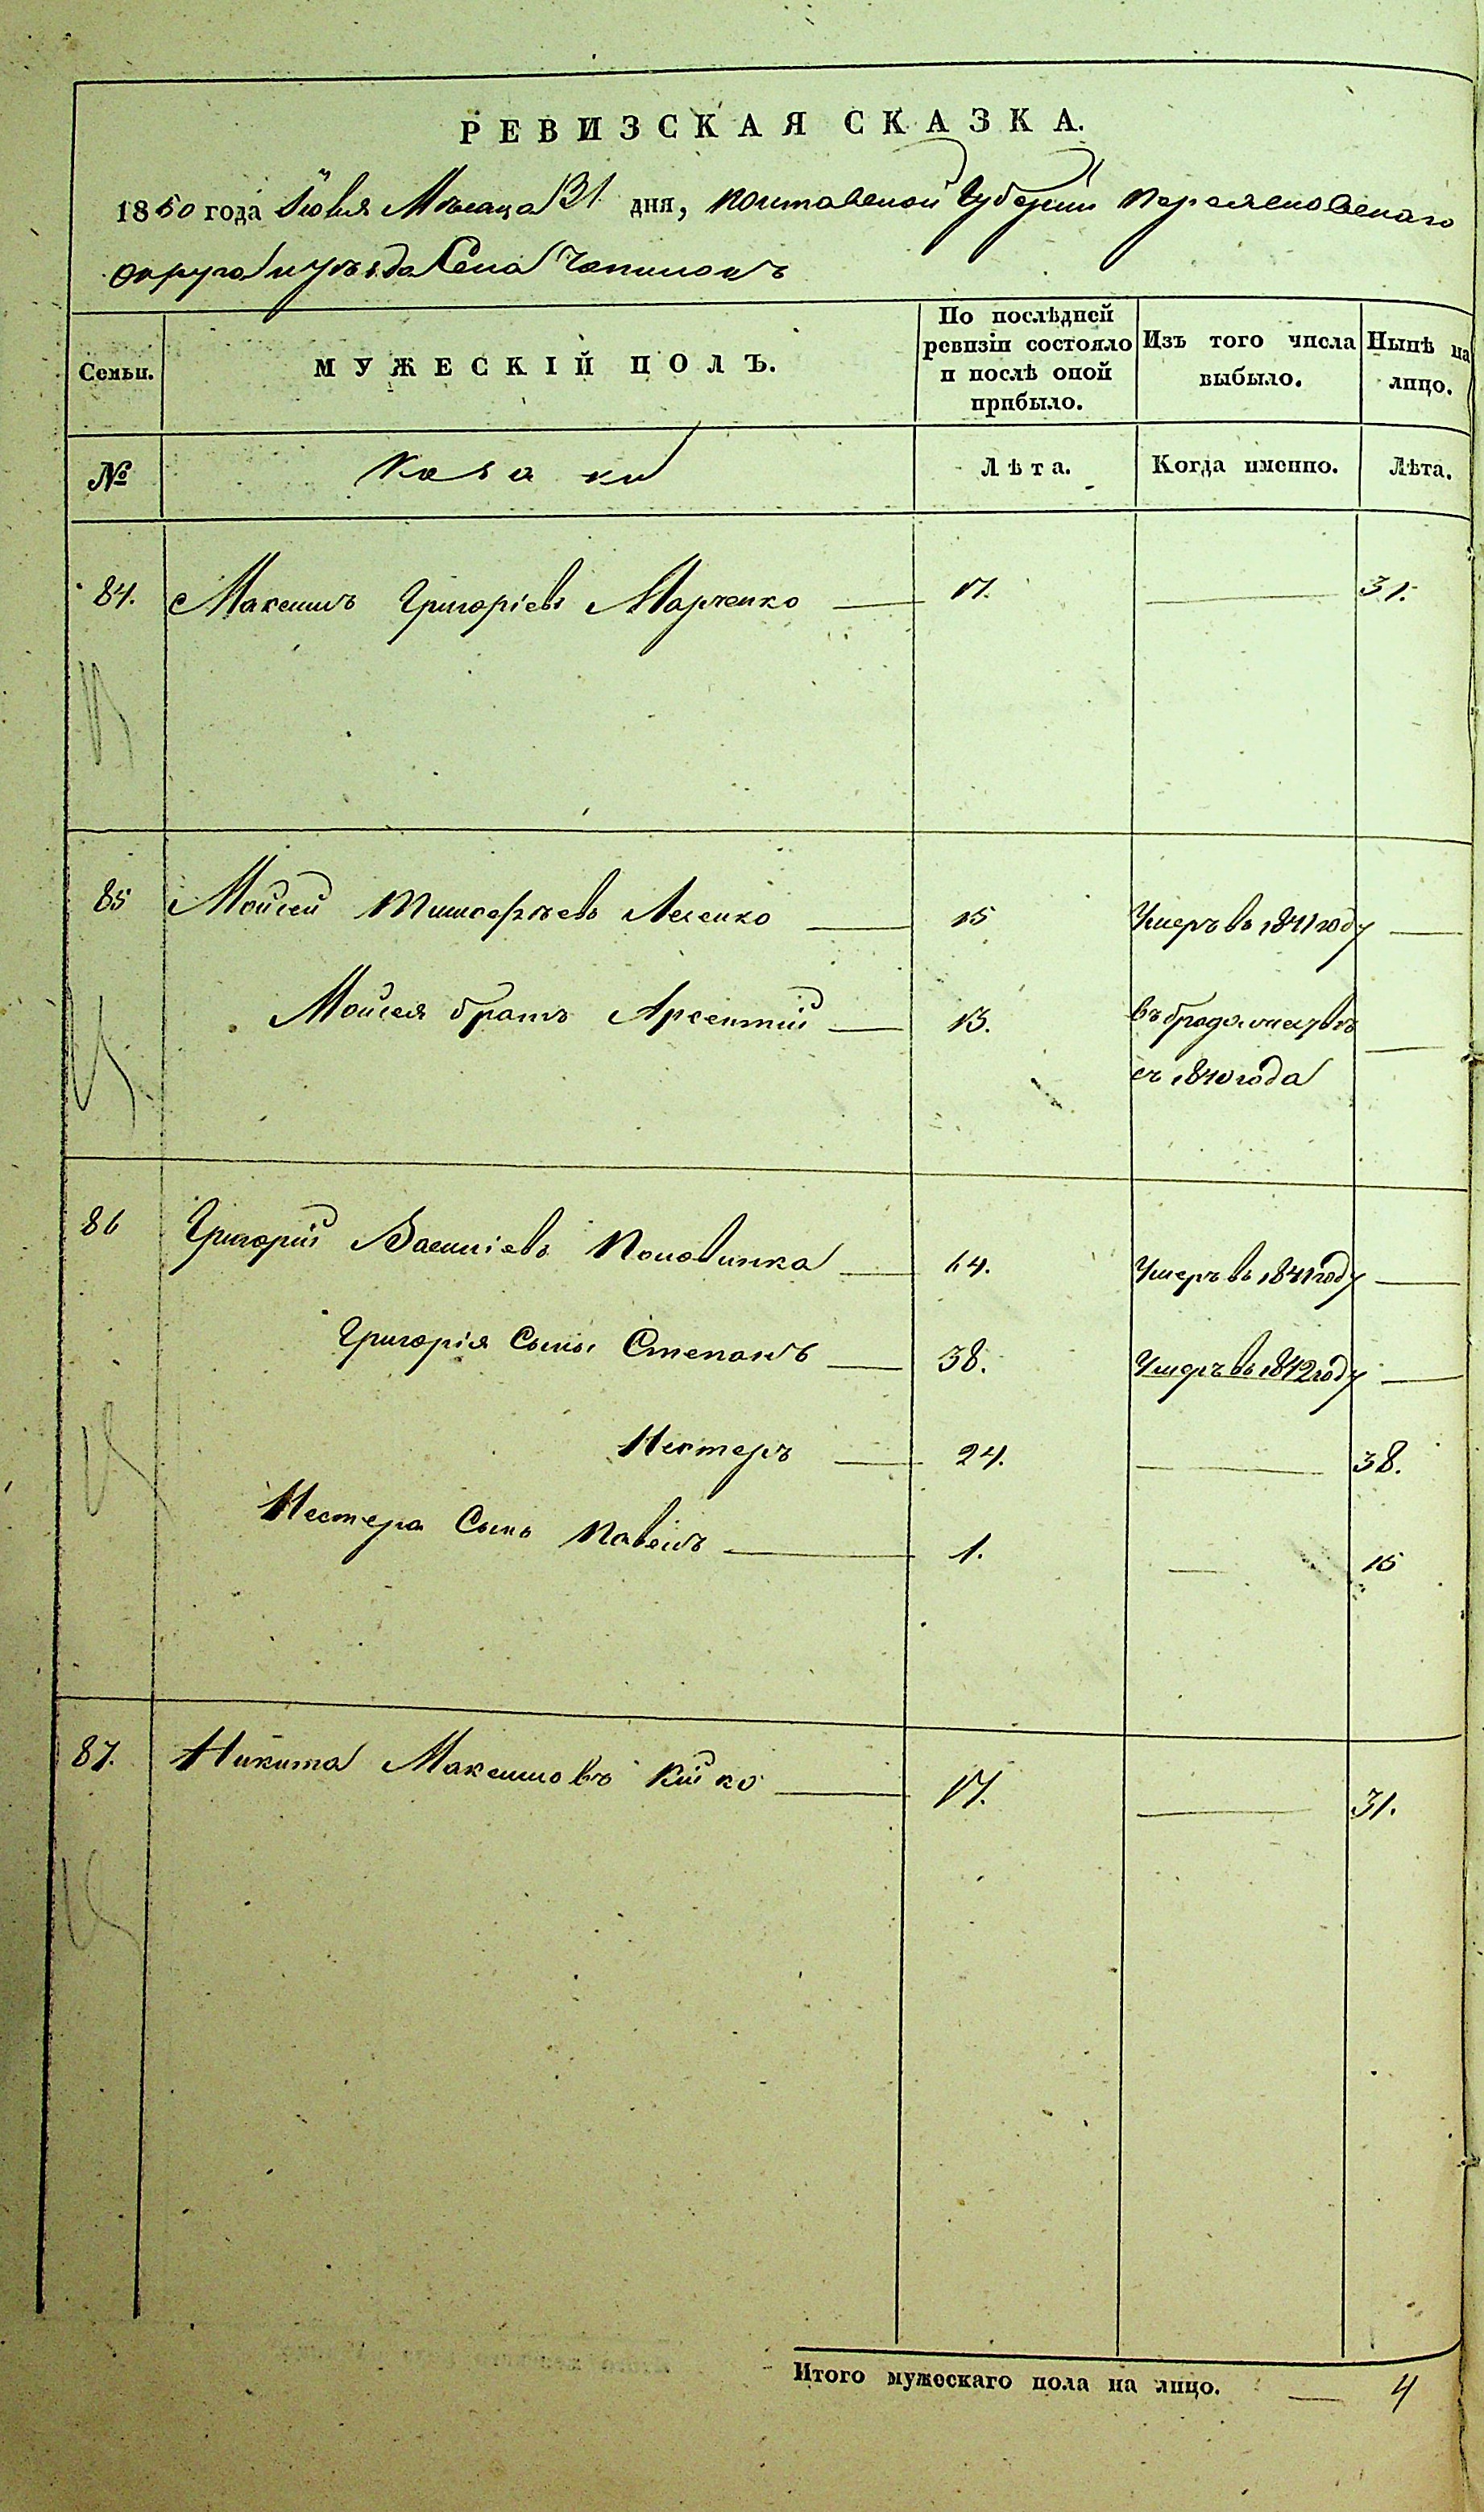 РЕВИЗСКАЯ СКАЗКА.
1850 года Іюля Мѣсяца 31 дня, Полтавской Губерніи Переясловскаго
округа и уѣзда Села Чопилокъ
Семьи.
МУЖЕСКІЙ ПОЛЪ.
По послѣдней ревизіи состояло и послѣ оной прибыло.
Изъ того числа выбыло.
Нынѣ на лицо.
№
Козаки
Лѣта.
Когда именно.
Лѣта.
84. Максимъ Григоріевъ Марченко — 17. — 31.
85 Мойсей Тимофеевъ Лесенко — 15 Умеръ въ 1841 году —
Мойсея братъ Арсентій — 13. въ бродяжествѣ —
съ 1840 года
86 Григорій Василіевъ Половинка — 64. Умеръ въ 1841 году —
Григорія Сыны Степанъ — 38. Умеръ въ 1842 году —
Нестеръ — 24. — 38.
Нестера Сынъ Павелъ — 1. — 15
87. Никита Максимовъ Кійко — 17. — 31.
Итого мужескаго пола на лицо. — 4